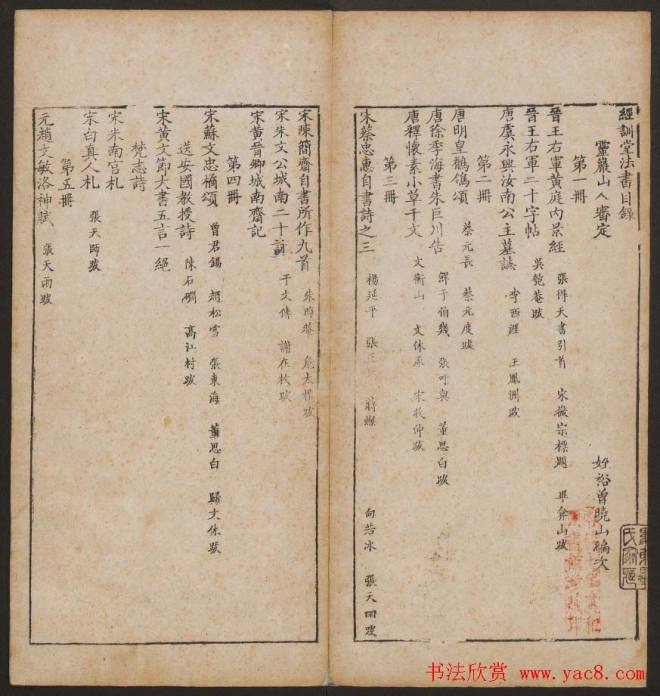 經訓堂法書目錄
靈巖山人審定
好裕曾曉山編次
第一冊
晉王右軍黃庭內景經 張得天書引首 宋徽宗標題 畢弇山跋
晉王右軍二十字帖 吳匏菴跋
唐虞永興汝南公主墓誌 李西涯 王鳳洲跋
第二冊
唐明皇鶺鴒頌 蔡元長 蔡元度跋
唐徐季海書朱巨川告 鮮于伯幾 張可與 董思白跋
唐釋懷素小草千文 文衡山 文休承 宋牧仲跋
第三冊
宋蔡忠惠自書詩之三 楊延平 張 蔣燦 向若冰 張天雨跋
宋陳簡齋自書所作九首 朱 危太樸跋
宋朱文公城南二十詠 干文傳 謝在杭跋
宋黃晉卿城南齋記
第四冊
宋蘇文忠橘頌 曾君錫 趙松雪 張東海 董思白 歸文休跋
送安國教授詩 陳石礀 高江村跋
宋黃文節大書五言一絕
梵志詩
宋朱南宮札
宋白真人札 張天師跋
第五冊
元趙文敏洛神賦 張天雨跋
书法欣赏 www.yac8.com